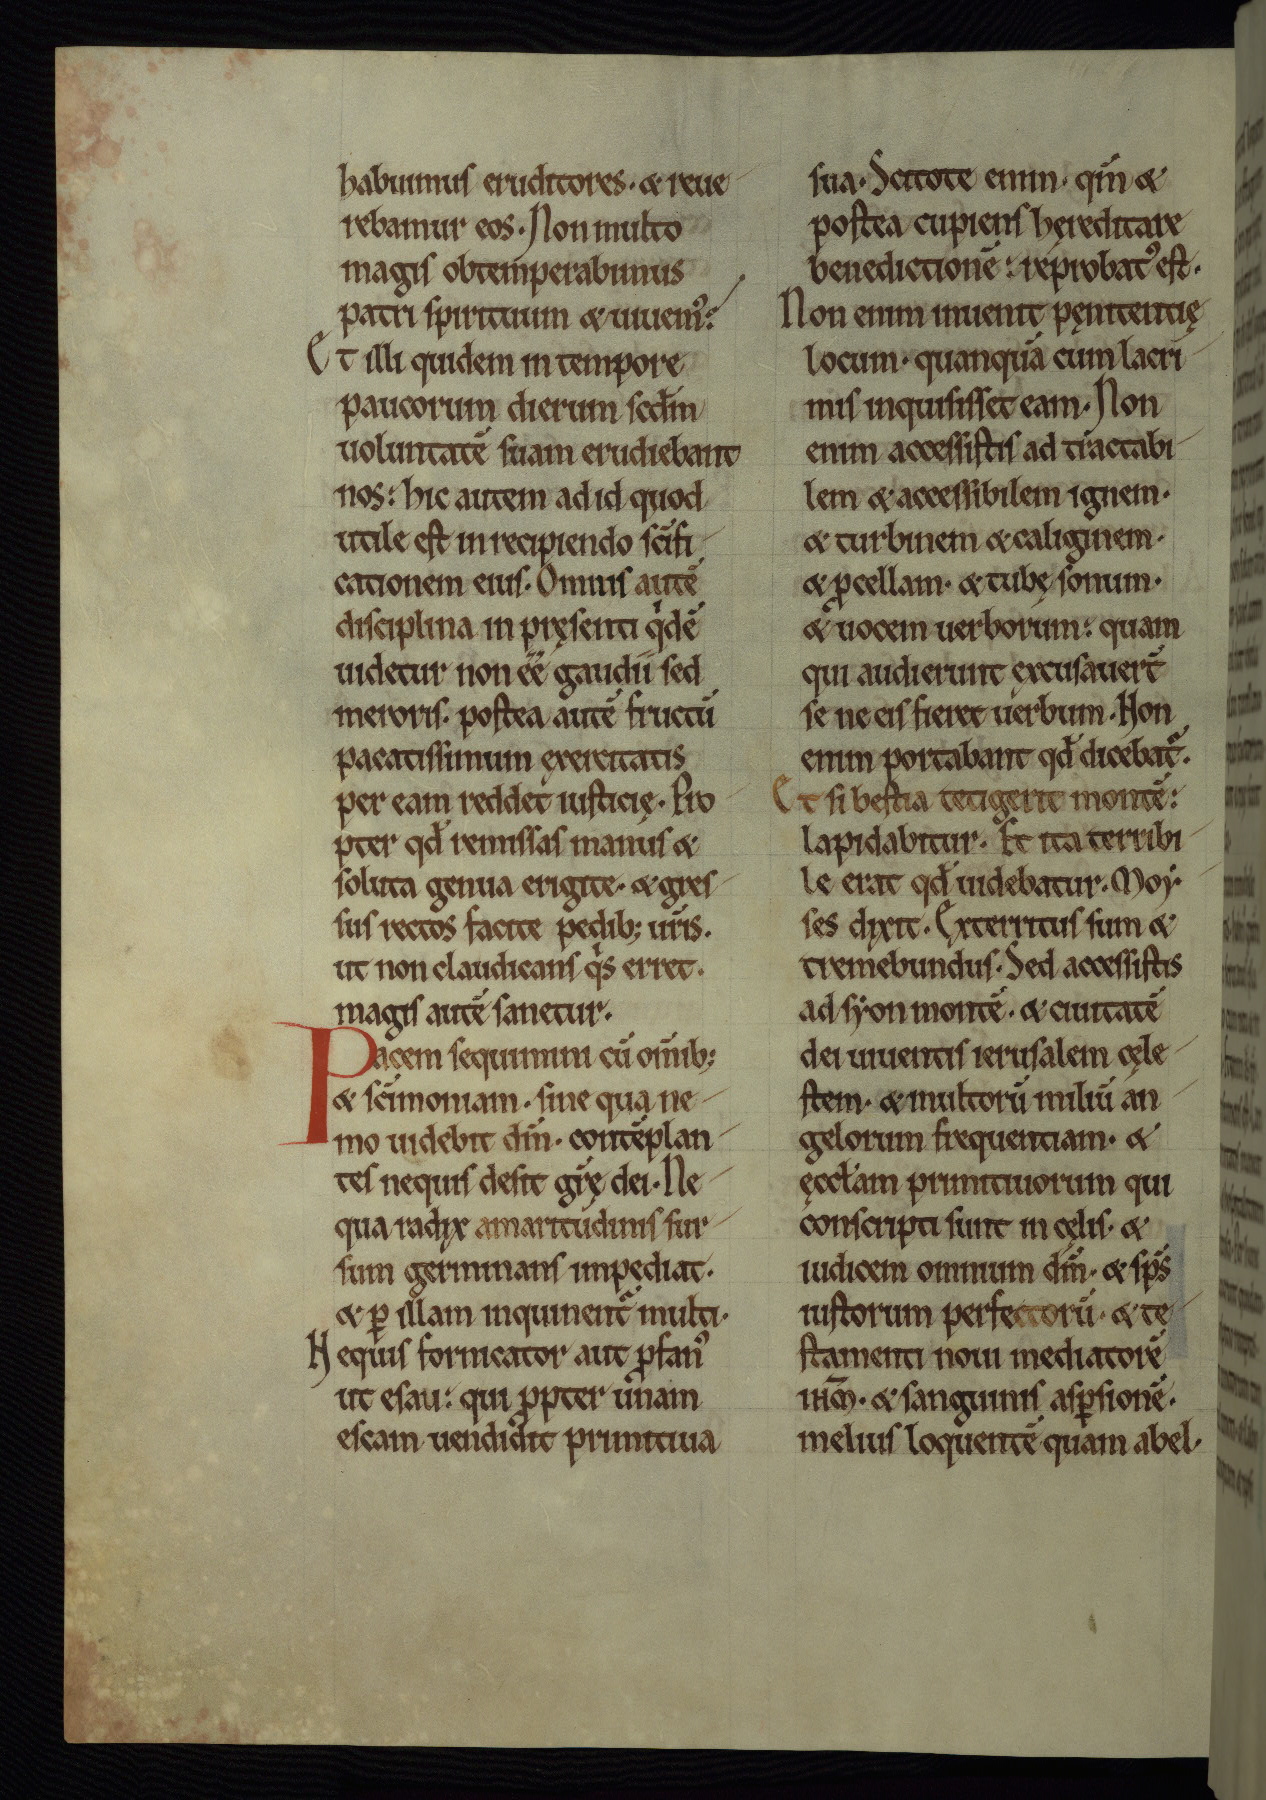 habuimus eruditores. & reue
rebamur eos. Non multo
magis obtemperabimus
patri spirituum & uiuem᾿:
Et illi quidem in tempore
paucorum dierum scd̄m
uoluntatē suam erudiebant
nos: hic autem ad id quod
utile est in recipiendo sc̄ifi
cationem eius. Omnis autē
disciplina in pręsenti qͥdē
uidetur non ēē gaudii sed
meroris. postea autē fructū
pacatissimum exercitatis
per eam reddet iusticię. Pro
pter qd̄ remissas manus &
soluta genua erigite. & gres
sus rectos facite pedib; ur̄is.
ut non claudicans qͥs erret.
magis autē sanetur.
Pacem sequimini cū om̄ib;
& sc̄imoniam. sine qua ne
mo uidebit dm̄. contēplan
tes nequis desit gr̄ę dei. Ne
qua radix amaritudinis sur
sum germinans impędiat.
& ꝑ illam inquinent᷑ multi.
Nequis fornicator aut ꝓfan᾿
ut esau: qui ꝓpter unam
escam uendidit primitiua
sua. Scitote enim. qm̄ &
postea cupiens hęreditare
benedictionē: reprobat᾿ est.
Non enim inuenit pęnitentię
locum. quanquā cum lacri
mis inquisisset eam. Non
enim accessistis ad tractabi
lem & accessibilem ignem.
& turbinem & caliginem.
& ꝓcellam. & tubę sonum.
& uocem uerborum: quam
qui audierunt excusauer̄t
se ne eis fieret uerbum. Non
enim portabant qd̄ dicebat᷑.
Et si bestia tetigerit montē:
lapidabitur. Et ita terribi
le erat qd̄ uidebatur. Moy
ses dixit. Exterritus sum &
tremebundus. Sed accessistis
ad syon montē. & ciuitatē
dei uiuentis ierusalem cęle
stem. & multorū miliū an
gelorum frequentiam. &
ęccl̄am primitiuorum qui
conscripti sunt in cęlis. &
iudicem omnium dm̄. & sps̄
iustorum perfectorū. & te
stamenti noui mediatorē
ih̄m. & sanguinis asꝑsionē.
melius loquentē quam abel.